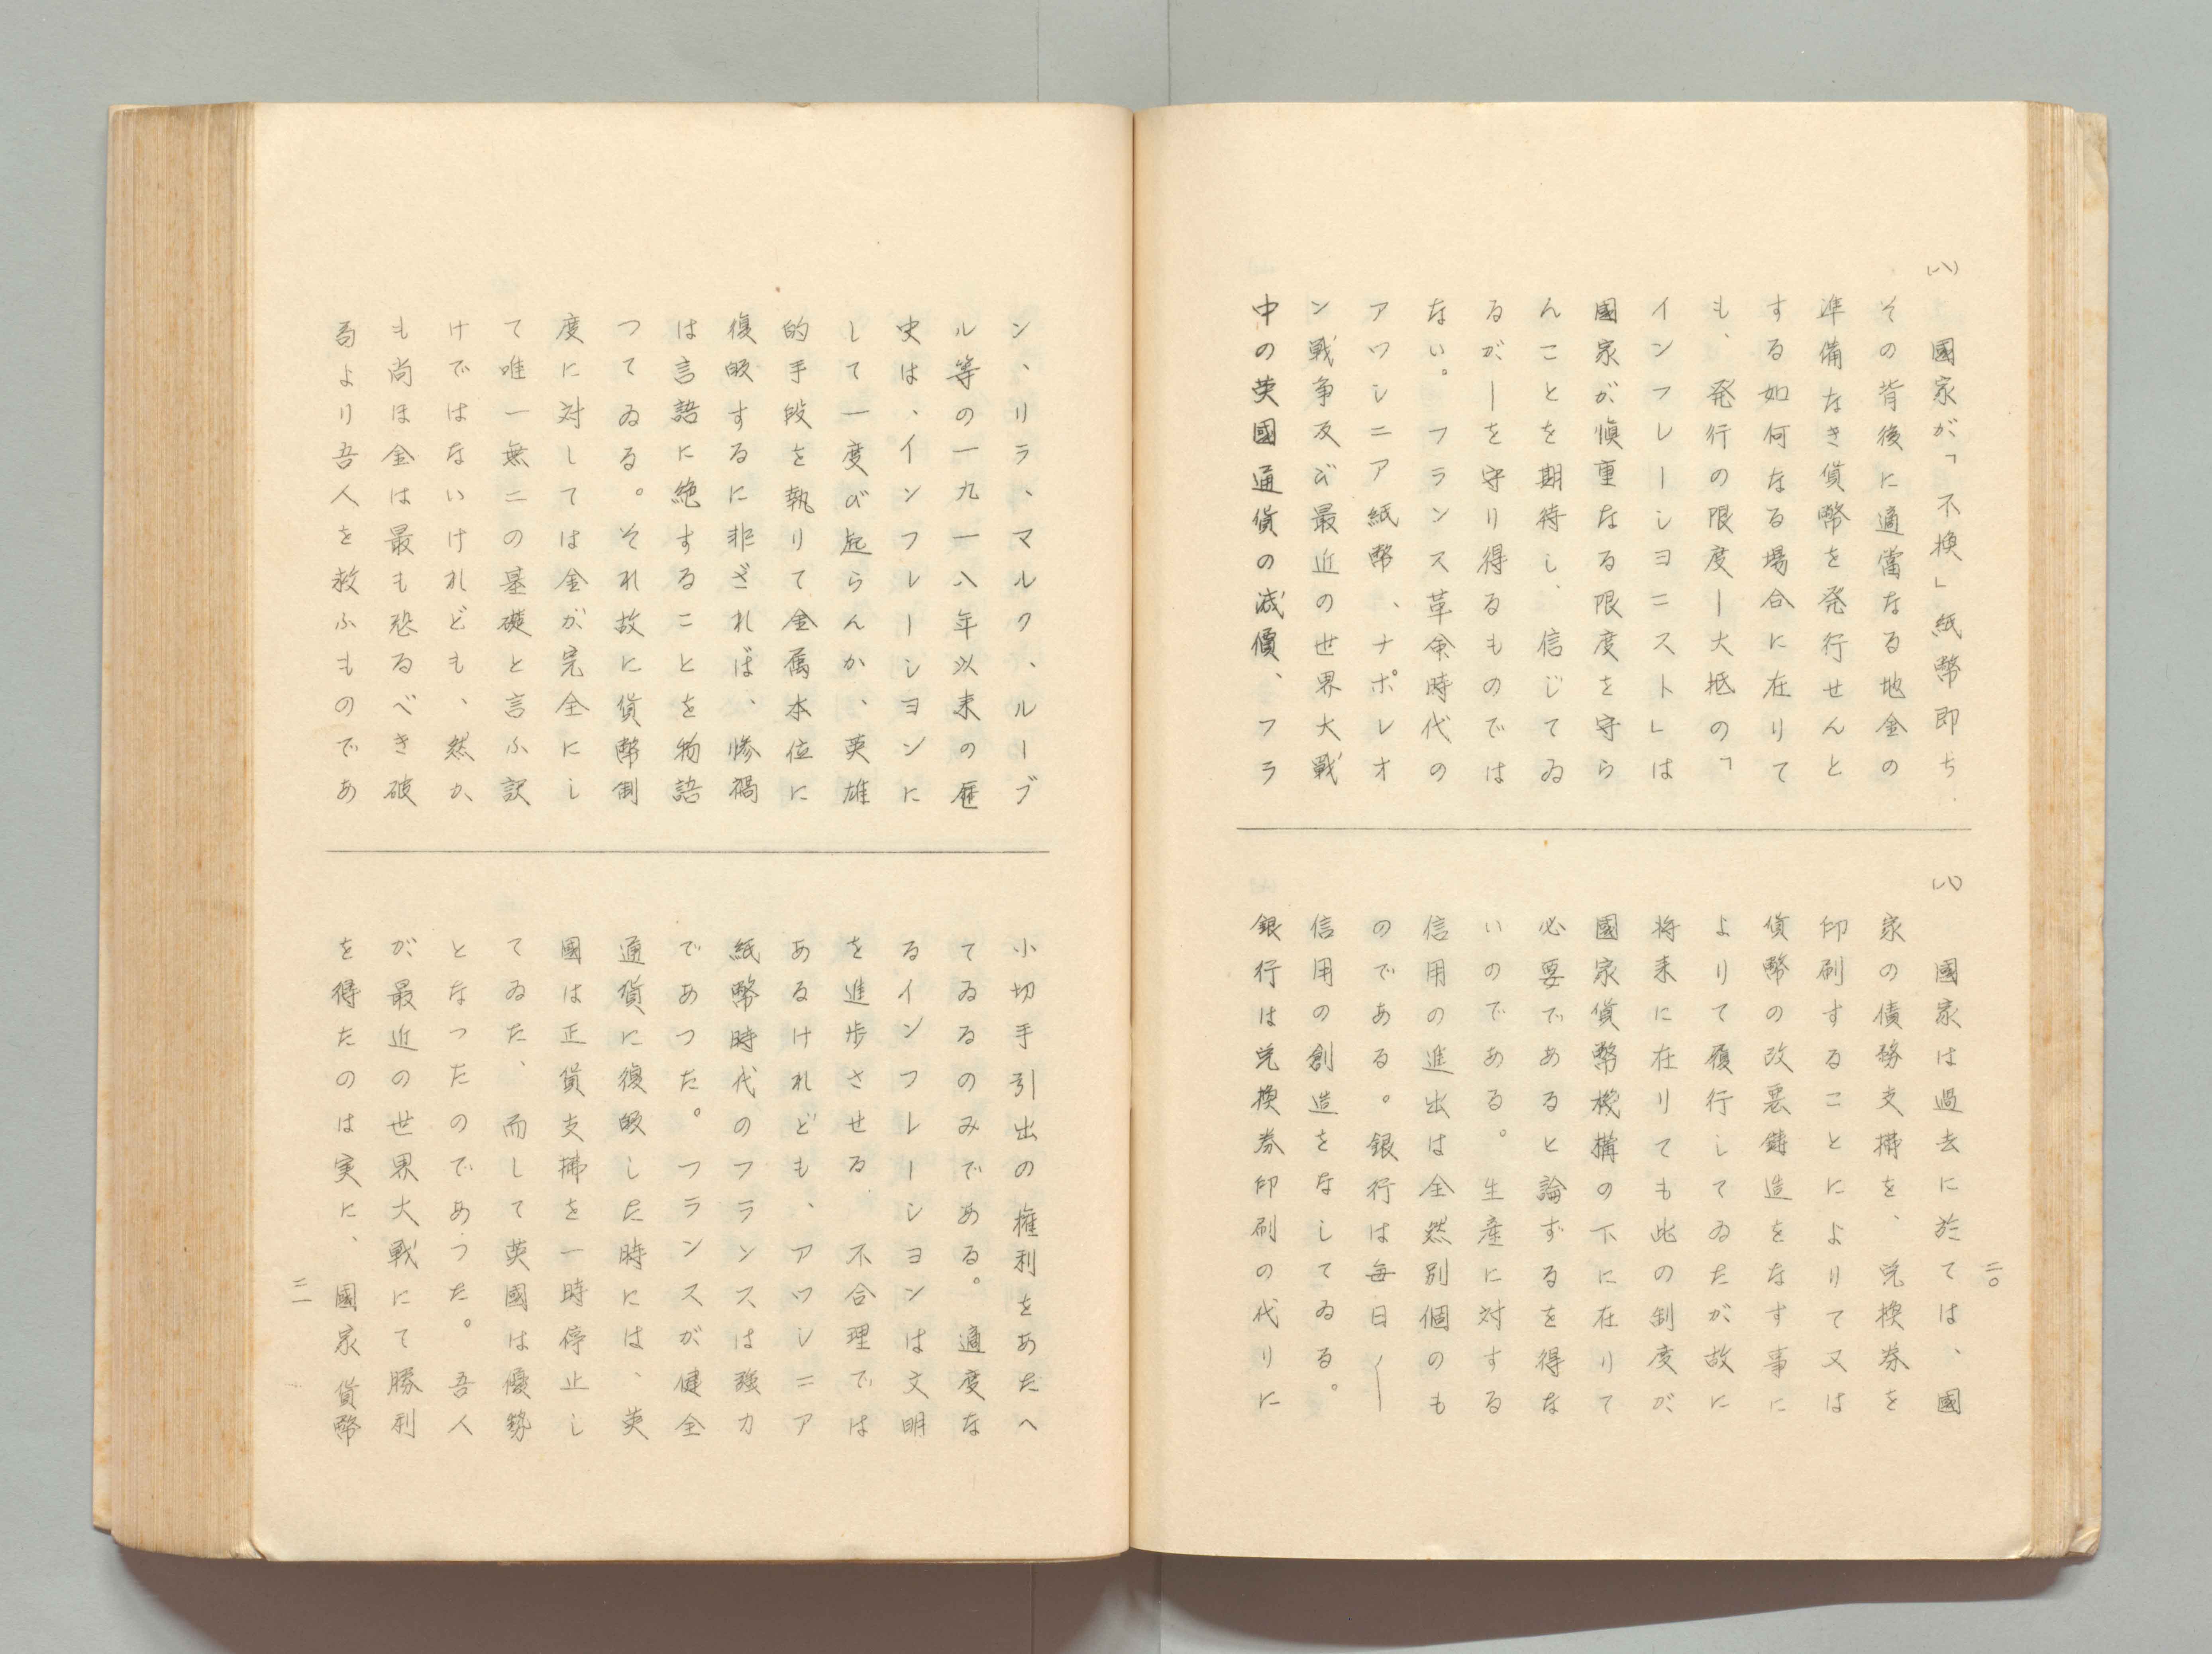 (八)
國家が「不換」紙幣即ち
その背後に適當なる地金の
準備なき貨幣を発行せんと
する如何なる場合に在りて
も、発行の限度ー大抵の「
インフレーシヨニスト」は
國家が慎重なる限度を守ら
んことを期待し、信じてゐ
るがーを守り得るものでは
ない。フランス革命時代の
アツシニア紙幣、ナポレオ
ン戰争及び最近の世界大戰
中の英國通貨の減價、フラ
(八)
國家は過去に於ては、國
家の債務支拂を、兌換券を
印刷することによりて又は
貨幣の改悪鋳造をなす事に
よりて履行してゐたが故に
将来に在りても此の制度が
國家貨幣機構の下に在りて
必要であると論ずるを得な
いのである。生産に対する
信用の進出は全然別個のも
のである。銀行は毎日〱ー
信用の創造をなしてゐる。
銀行は兌換券印刷の代りに
二〇
ン、リラ、マルク、ルーブ
ル等の一九一八年以来の歴
史は、インフレーシヨンに
して一度び起らんか、英雄
的手段を執りて金属本位に
復皈するに非ざれば、惨禍
は言語に絶することを物語
つてゐる。それ故に貨幣制
度に対しては金が完全にし
て唯一無二の基礎と言ふ訳
けではないけれども、然か
も尚ほ金は最も恐るべき破
局より吾人を救ふものであ
小切手引出の権利をあたへ
てゐるのみである。適度な
るインフレーシヨンは文明
を進歩させる、不合理では
あるけれども、アツシニア
紙幣時代のフランスは強力
であつた。フランスが健全
通貨に復皈した時には、英
國は正貨支拂を一時停止し
てゐた、而して英國は優勢
となつたのであつた。吾人
が最近の世界大戰にて勝利
を得たのは実に、國家貨幣
二一